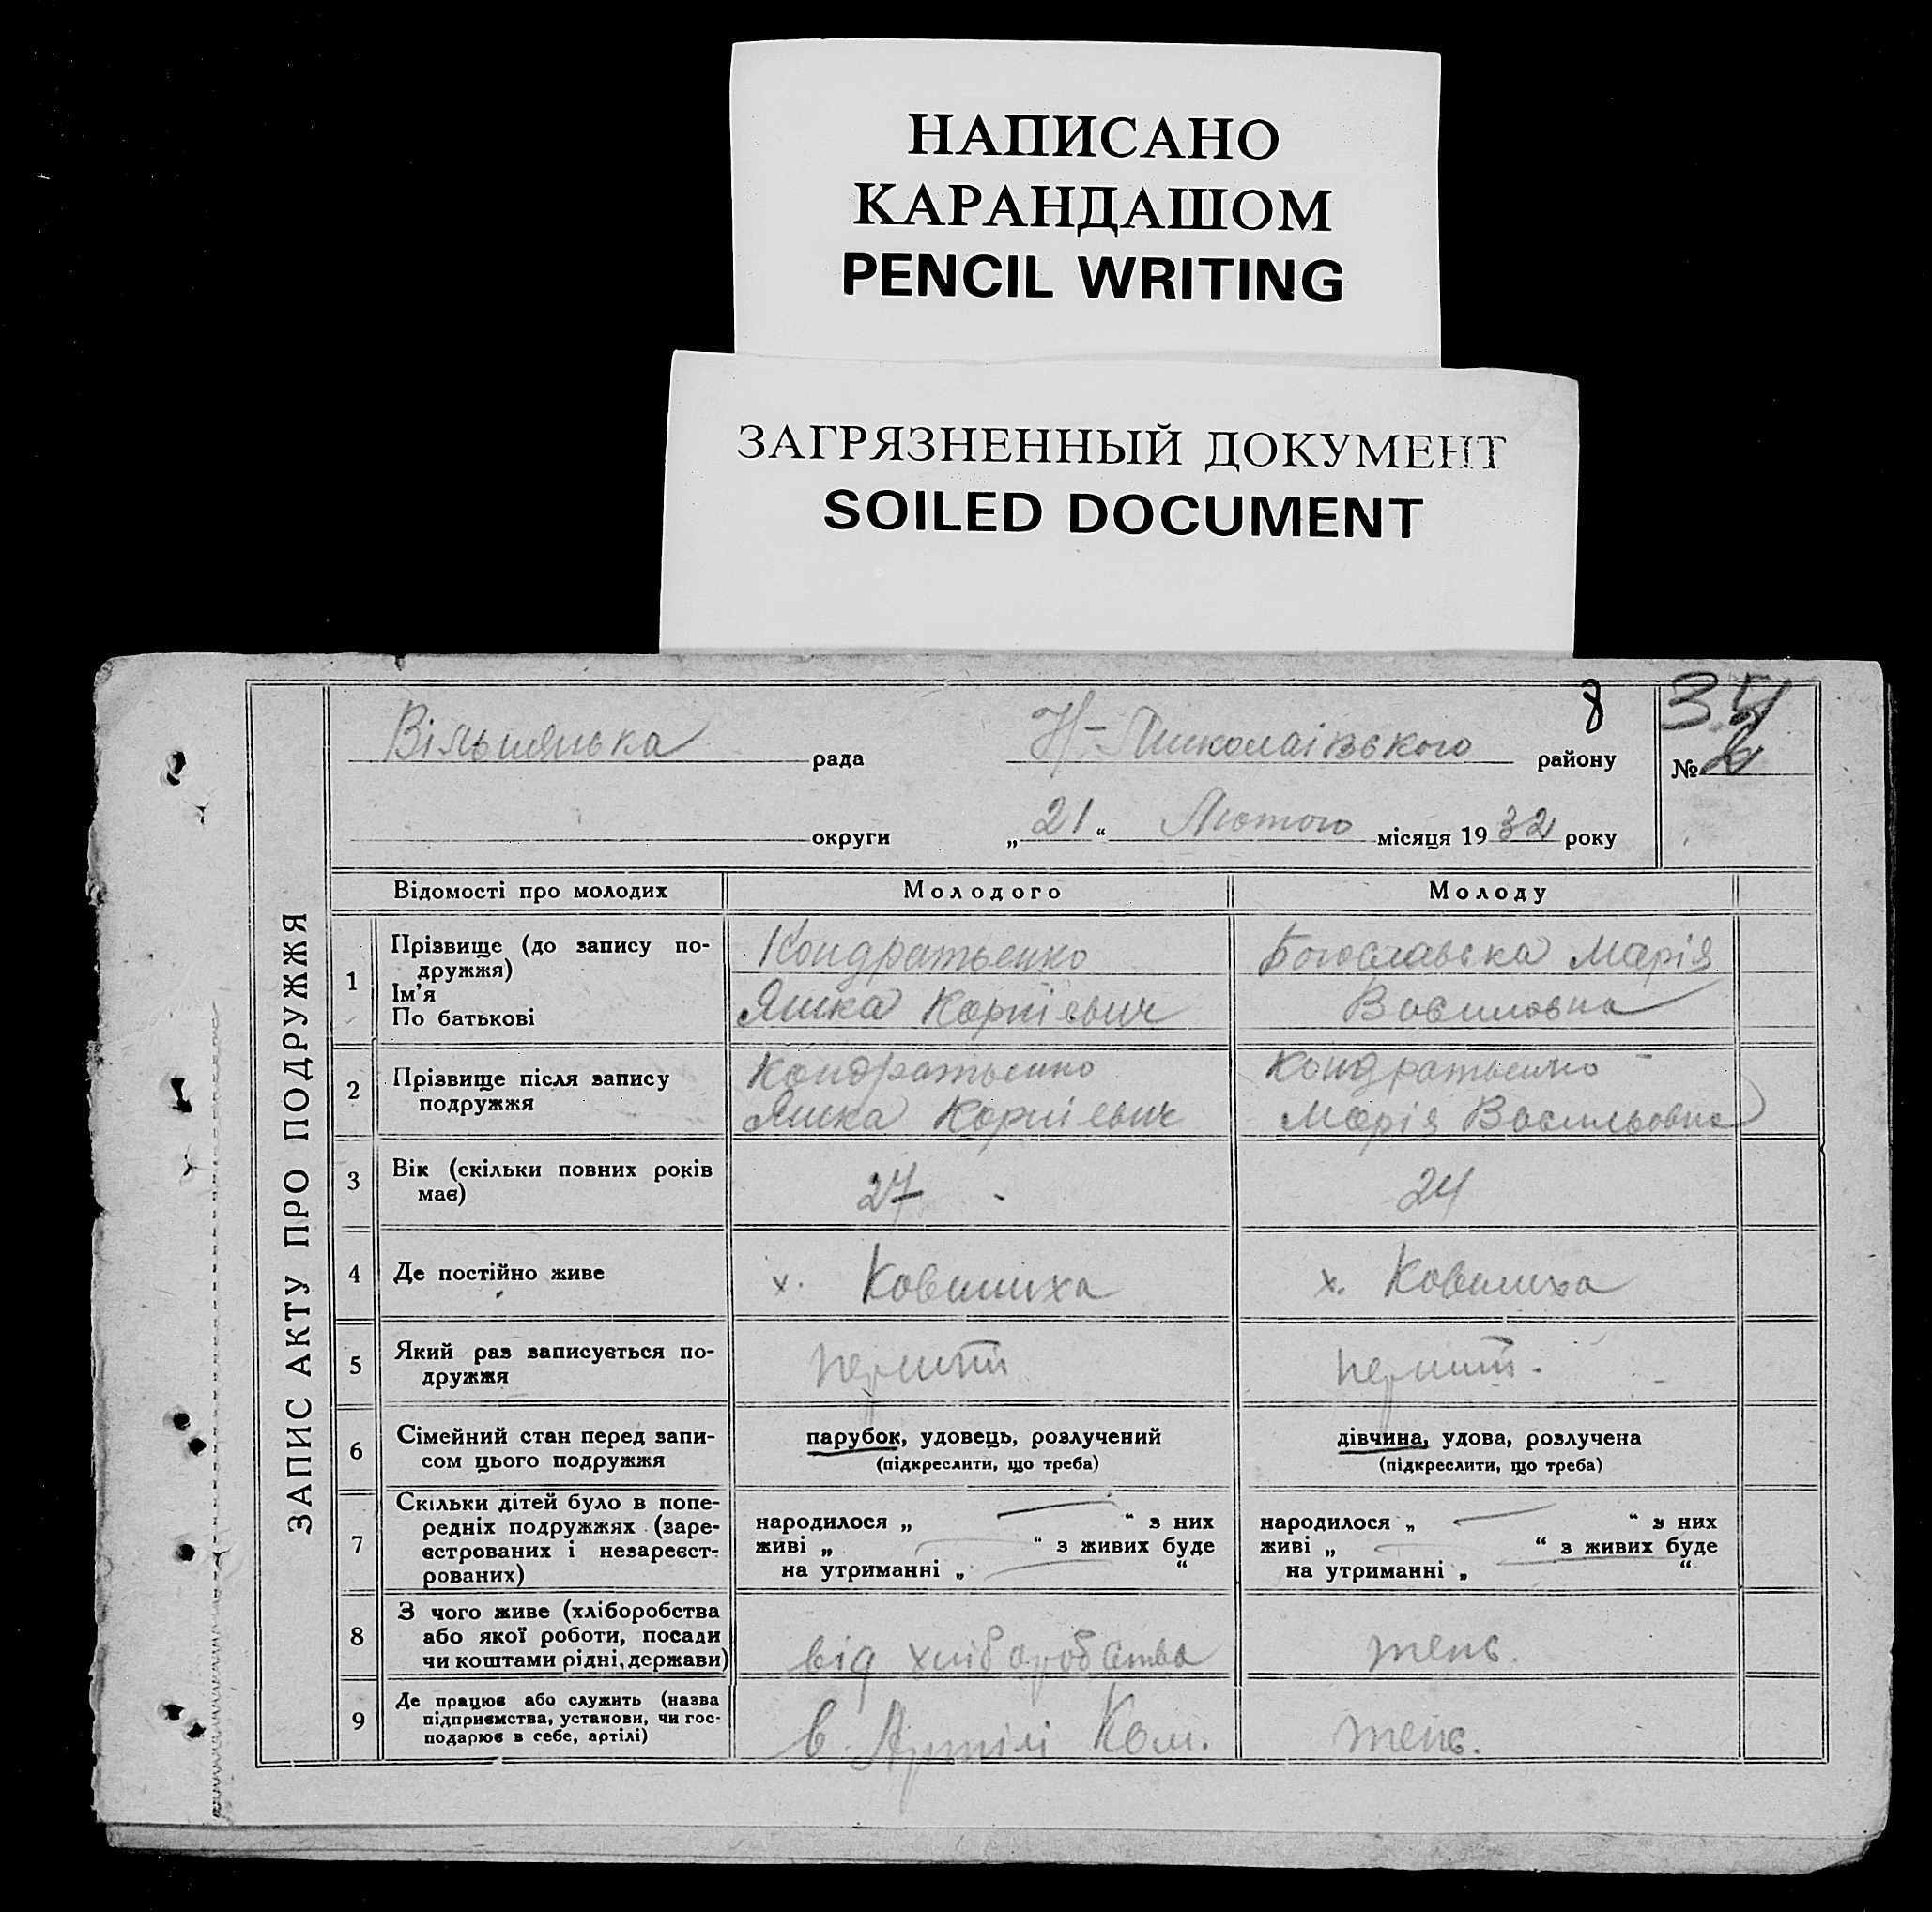 НАПИСАНО
КАРАНДАШОМ
PENCIL WRITING
ЗАГРЯЗНЕННЫЙ ДОКУМЕНТ
SOILED DOCUMENT
ЗАПИС АКТУ ПРО ПОДРУЖЖЯ
8
34
Вільшанська рада Н-Миколаівського району № 2
округи „21“ Лютого місяця 1932 року
Відомості про молодих Молодого Молоду
1 Прізвище (до запису по-
дружжя)
Ім'я
По батькові
Кондратьенко
Яшка Корнієвич
Богославська Марія
Василовна
2 Прізвище після запису
подружжя
Кондратьенко
Яшка Корнієвич
Кондратьенко
Марія Васильовна
3 Вік (скільки повних років
має)
27
24
4 Де постійно живе х. Ковалиха х. Ковалиха
5 Який раз записується по-
дружжя
перший
перший.
6 Сімейний стан перед запи-
сом цього подружжя
парубок, удовець, розлучений
(підкреслити, що треба)
дівчина, удова, розлучена
(підкреслити, що треба)
7 Скільки дітей було в попе-
редніх подружжях (заре-
єстрованих і незареєст-
рованих)
народилося „ “ з них
живі „ “ з живих буде
на утриманні „ “
народилося „ “ з них
живі „ “ з живих буде
на утриманні „ “
8 З чого живе (хліборобства
або якої роботи, посади
чи коштами рідні, держави)
від хліборобства
тепс.
9 Де працює або служить (назва
підприємства, установи, чи гос-
подарює в себе, артілі)
в Артілі Ком.
тепс.